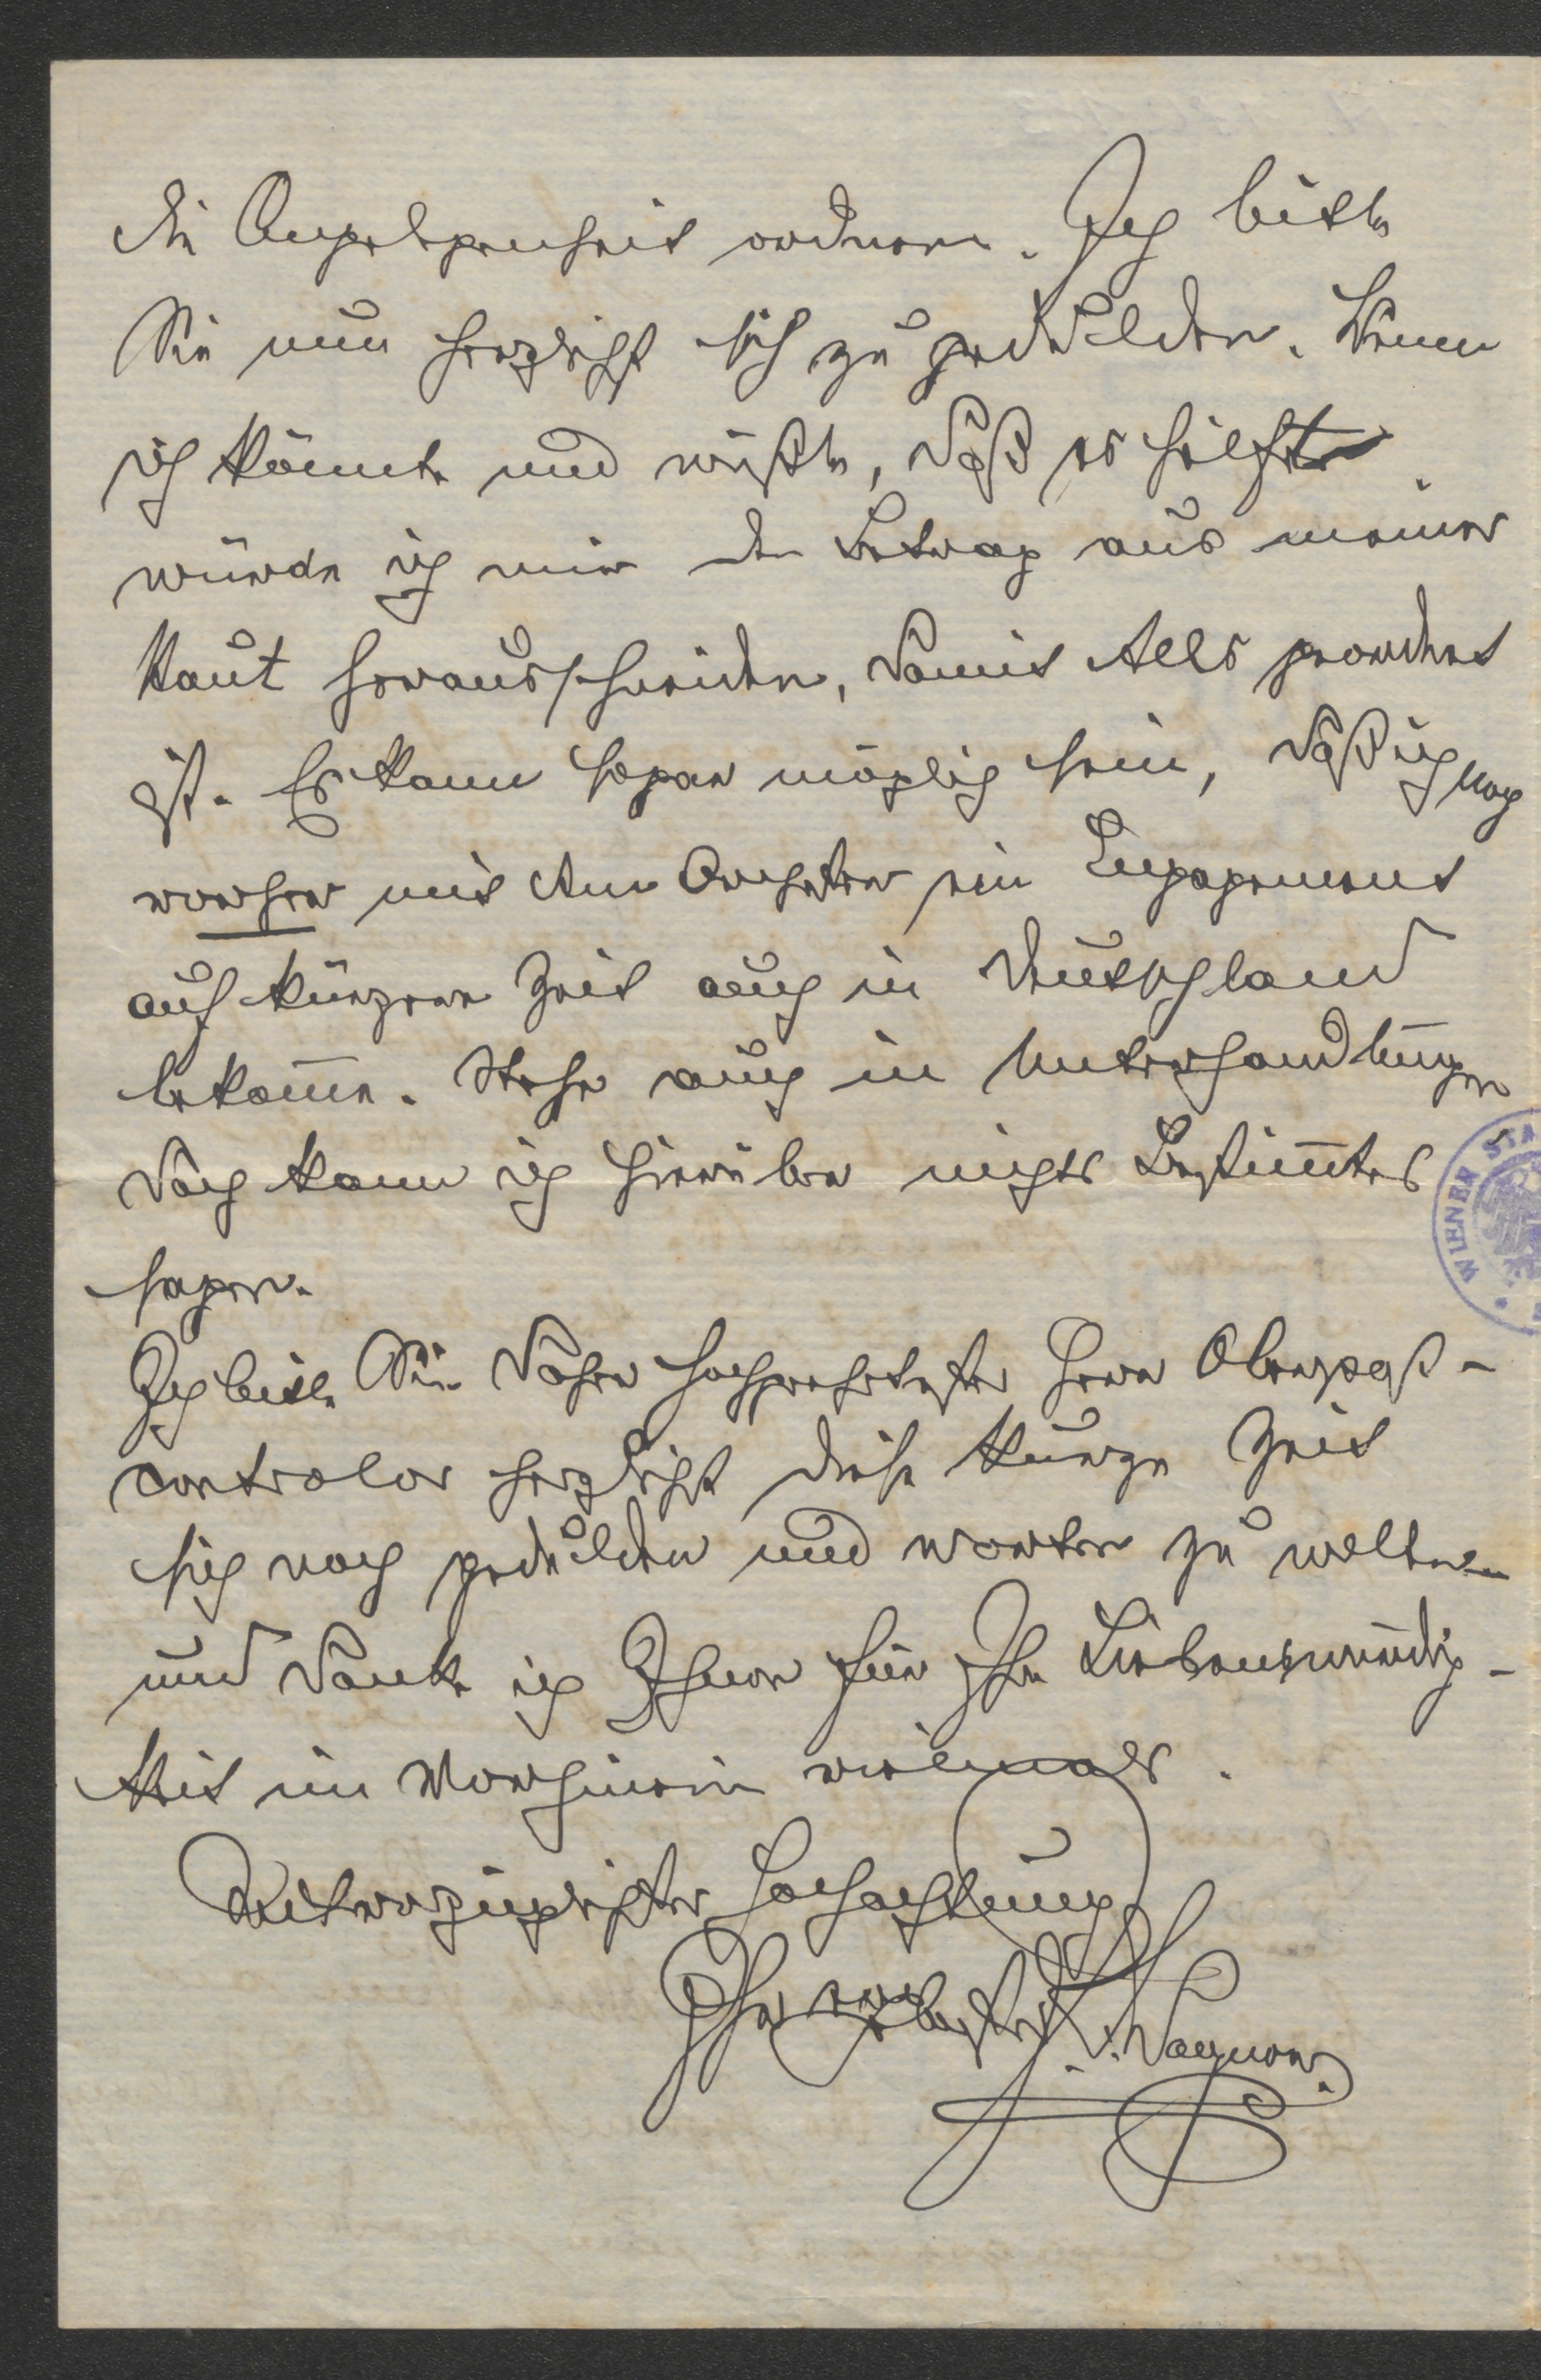 die Angelegenheit ordnen. Ich bitte
Sie nun herzlichst sich zu gedulden. Wenn
ich könnte und wüßte, daß es hilft
würde ich mir den Betrag aus meiner
Haut herausschneiden, damit Alls geordnet
ist. Es kann sogar möglich sein, daß ich noch
vorher mit dem Orchester ein Engagement
auf kürzere Zeit auch in Deutschland
bekom̅e. Stehe auch in Unterhandlungen
doch kann ich hierüber nichts Bestim̅tes
sagen.
Ich bitte Sie daher hochgeehrtester Herr Oberpost-
controlor herzlichst diese kurze Zeit
sich noch gedulden und warten zu wollen
und danke ich Ihnen für Ihre Liebenswürdig-
keit im Vorhinein vielmals.
Mit vorzüglichster Hochachtung
Ihr ergebenster J. F. Wagner.
WIENER STA